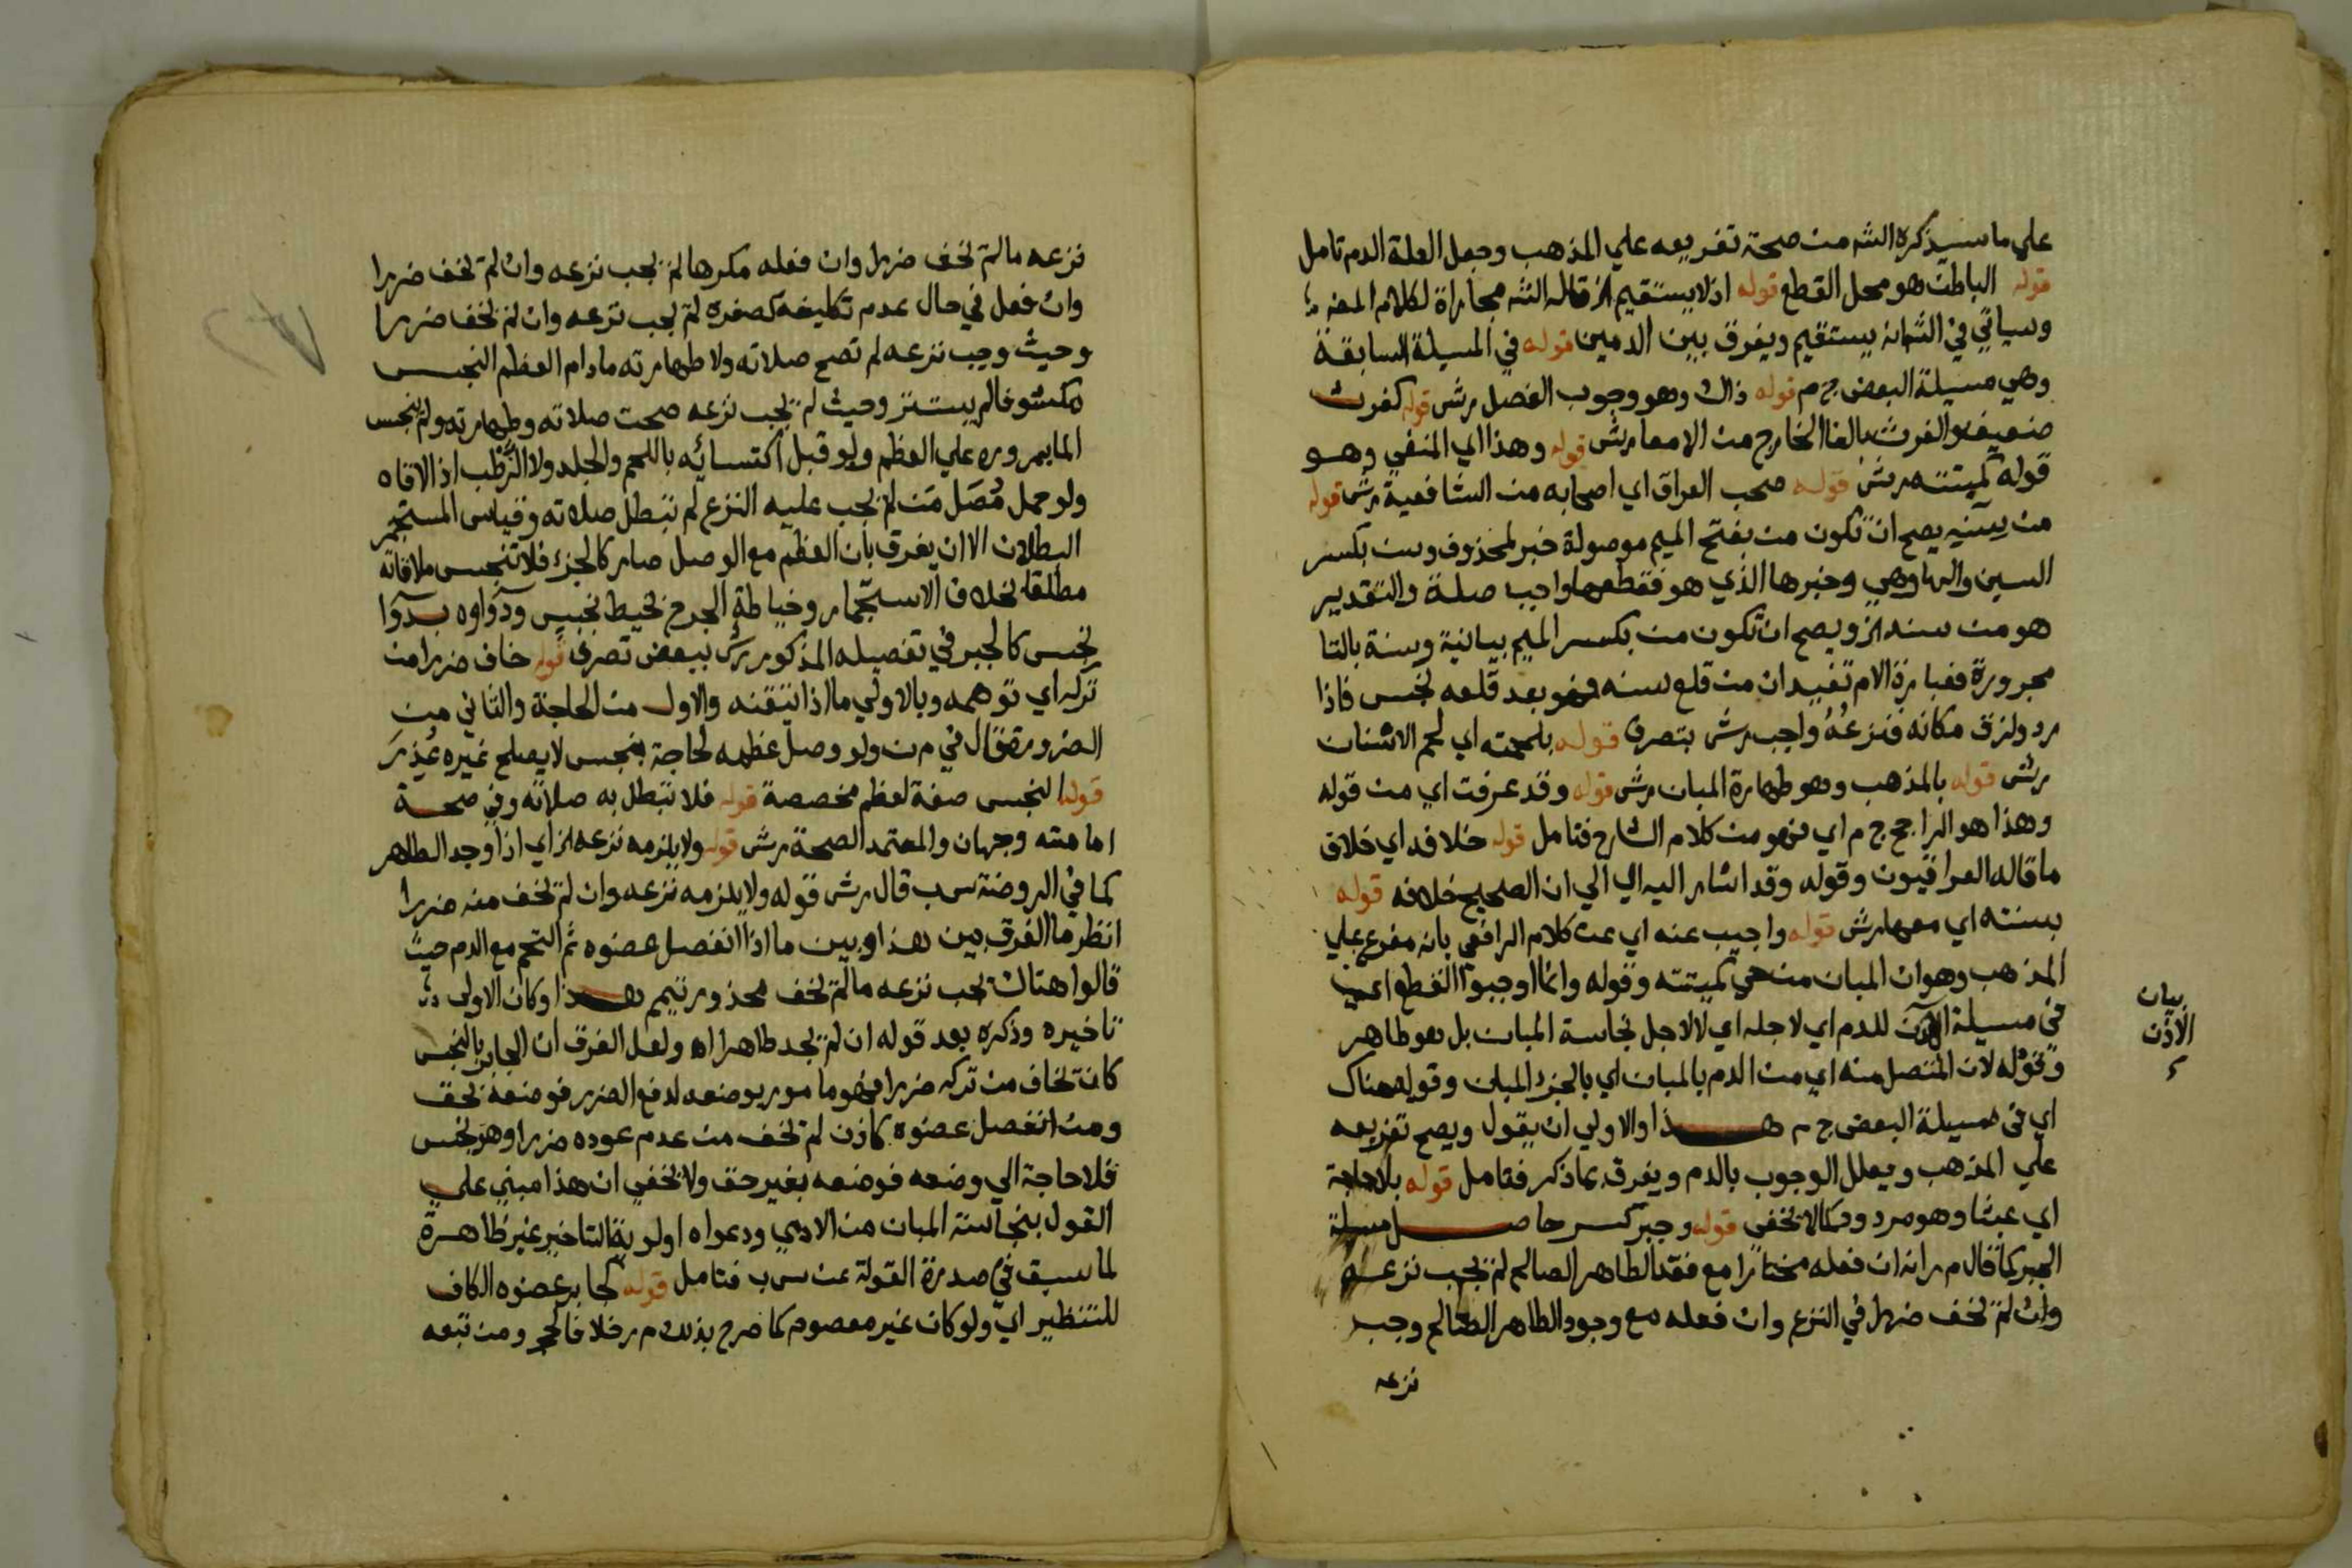 علي ماسيذكره الشه من صحة تفريعه علي المذهب وجعل العلة الدم تامل
قوله الباطن هو محل القطع قوله اذ لا يستقيم الخ قاله الشه مجاراة لكلام المص
وسياتي في الشه انه يستقيم ويفرق بين الدمين قوله في المسيلة السابقة
وهي مسيلة البعض ج م قوله ذاك وهو وجوب الفصل رش قوله كفرث
ضعيف والفرث بالفا الخارج من الامعا رش قوله وهذا اي المنفي وهو
قوله كميتته رش قوله صحب العراق اي اصحابه من الشافعية رش قوله
من سنيه يصح ان تكون من بفتح الميم موصولة خبر لمحذوف وسن بكسر
السين والها وهي وخبرها الذي هو فقطعها واجب صلة والتقدير
هو من سنه الخ ويصح ان تكون من بكسر الميم بيانية وسنة بالتا
مجرورة فعبارة الام تفيد ان من قلع سنه فهو بعد قلعه نجس فاذا
رد ولزق مكانه فنزعُهُ واجب رش بتصرف قوله بلحمته اي لحم الاسنان
رش قوله بالمذهب وهو طهارة المبان رش قوله وقد عرفت اي من قوله
وهذا هو الراجح ج م اي فهو من كلام الشارح فتامل قوله خلافه اي خلاف
ما قاله العراقيون وقوله وقد اشار اليه اي الي ان الصحيح خلافه قوله
بسنته اي معها رش قوله واجيب عنه اي عن كلام الرافعي بانه مفرع علي
المذهب وهو ان المبان من حي كميتته وقوله وانما اوجبوا القطع اي
في مسيلة الاذن للدم اي لاجله اي لا لاجل نجاسة المبان بل هو طاهر
وقوله لان المتصل منه اي من الدم بالمبان اي بالجزء المبان وقوله هناك
اي في مسيلة البعض ج م هذا والاولي ان يقول ويصح تفريعه
علي المذهب ويعلل الوجوب بالدم ويفرق بما ذكر فتامل قوله بلا حاجة
اي عبثا وهو مردود كما لا يخفي قوله وجبر كسر حاصل مسيلة
الجبر كما قال م ر انه ان فعله مختارا مع فقد الطاهر الصالح لم يجب نزعه
وان لم يخف ضررا في النزع وان فعله مع وجود الطاهر الصالح وجب
نزعه
بيان
الاذن
نزعه مالم يخف ضررا وان فعله مكرها لم يجب نزعه وان لم يخف ضررا
وان فعل في حال عدم تكليفه كصغره لم يجب نزعه وان لم يخف ضررا
وحيث وجب نزعه لم تصح صلاته ولا طهارته مادام العظم النجس
مكشوفا لم يستتر وحيث لم يجب نزعه صحت صلاته وطهارته ولم ينجس
الما بمروره علي العظم ولو قبل اكتسائه باللحم والجلد ولا الرطب اذا لاقاه
ولو حمل مُصَل مَن لم يجب عليه النزع لم تبطل صلاته وقياس المستجمر
البطلان الا ان يفرق بان العظم مع الوصل صار كالجزء فلا تنجس ملاقاته
مطلقا بخلاف الاستجمار وخياطة الجرح بخيط نجس ودَواوه بدَوا
نجس كالجبر في تفصيله المذكور رش ببعض تصرف قوله خاف ضررا من
تركه اي توهمه وبالاولي ما اذا تيقنه والاول من الحاجة والثاني من
الضرورة قال في م ن ولو وصل عظمه لحاجة بنجس لا يصلح غيره عُذِرَ
قوله النجس صفة لعظم مخصصة قوله فلا تبطل به صلاته وفي صحة
امامته وجهان والمعتمد الصحة رش قوله ولا يلزمه نزعه الخ اي اذا وجد الطاهر
كما في الروضة س ب قال رش قوله ولا يلزمه نزعه وان لم يخف منه ضررا
انظر ما الفرق بين هذا وبين ما اذا انفصل عضوه ثم التحم مع الدم حيث
قالوا هناك يجب نزعه مالم يخف محذور تيمم هذا وكان الاولي
تاخيره وذكره بعد قوله ان لم يجد طاهرا اه ولعل الفرق ان الجابر بالنجس
كان يخاف من تركه ضررا فهو مامور بوضعه لدفع الضرر فوضعه بحق
ومن انفصل عضوه كاذن لم يخف من عدم عوده ضررا وهو نجس
فلا حاجة الي وضعه فوضعه بغير حق ولا يخفي ان هذا مبني علي
القول بنجاسة المبان من الادمي ودعواه اولوية التاخير غير ظاهرة
لما سبق في صدرة القولة عن س ب فتامل قوله كجابر عضوه الكاف
للتنظير اي ولو كان غير معصوم كما صرح بذلك م ر خلافا لحجر ومن تبعه